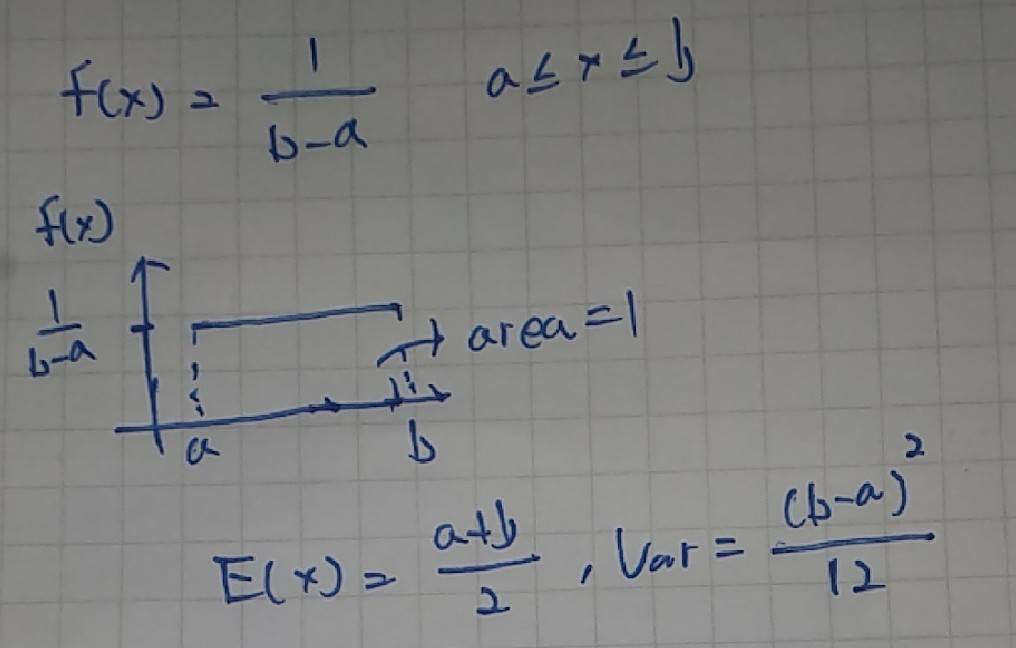 f(x) = 1/(b-a) a ≤ x ≤ b
f(x)
1/(b-a)
area = 1
a b
E(x) = (a+b)/2 , Var = (b-a)²/12